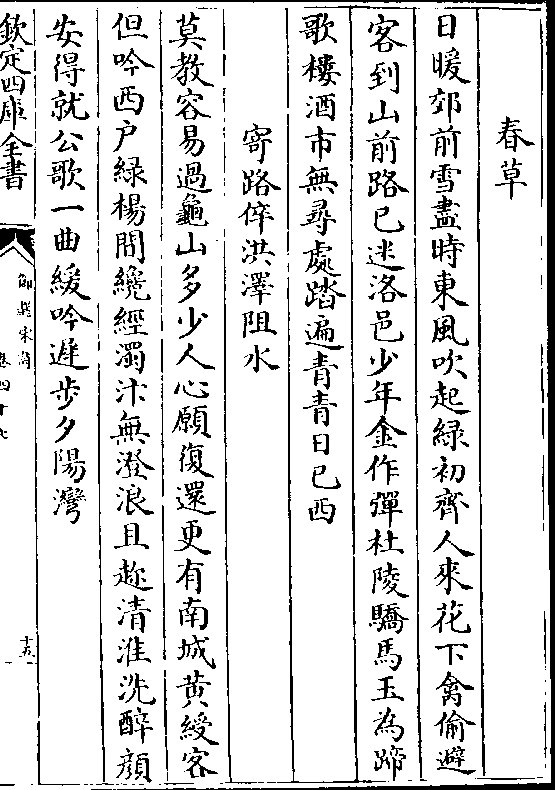 春草
日暖郊前雪盡時東風吹起緑初齊人來花下禽偷避
客到山前路已迷洛邑少年金作彈杜陵驕馬玉為蹄
歌樓酒市無尋處踏遍青青日已西
寄路倅洪澤阻水
莫教容易過龜山多少人心願復還更有南城黄綬客
但吟西户緑楊閒纔經濁汴無澄浪且趂清淮洗醉顔
安得就公歌一曲緩吟遲步夕陽灣
欽定四庫全書
御選宋詩
卷四十
十五